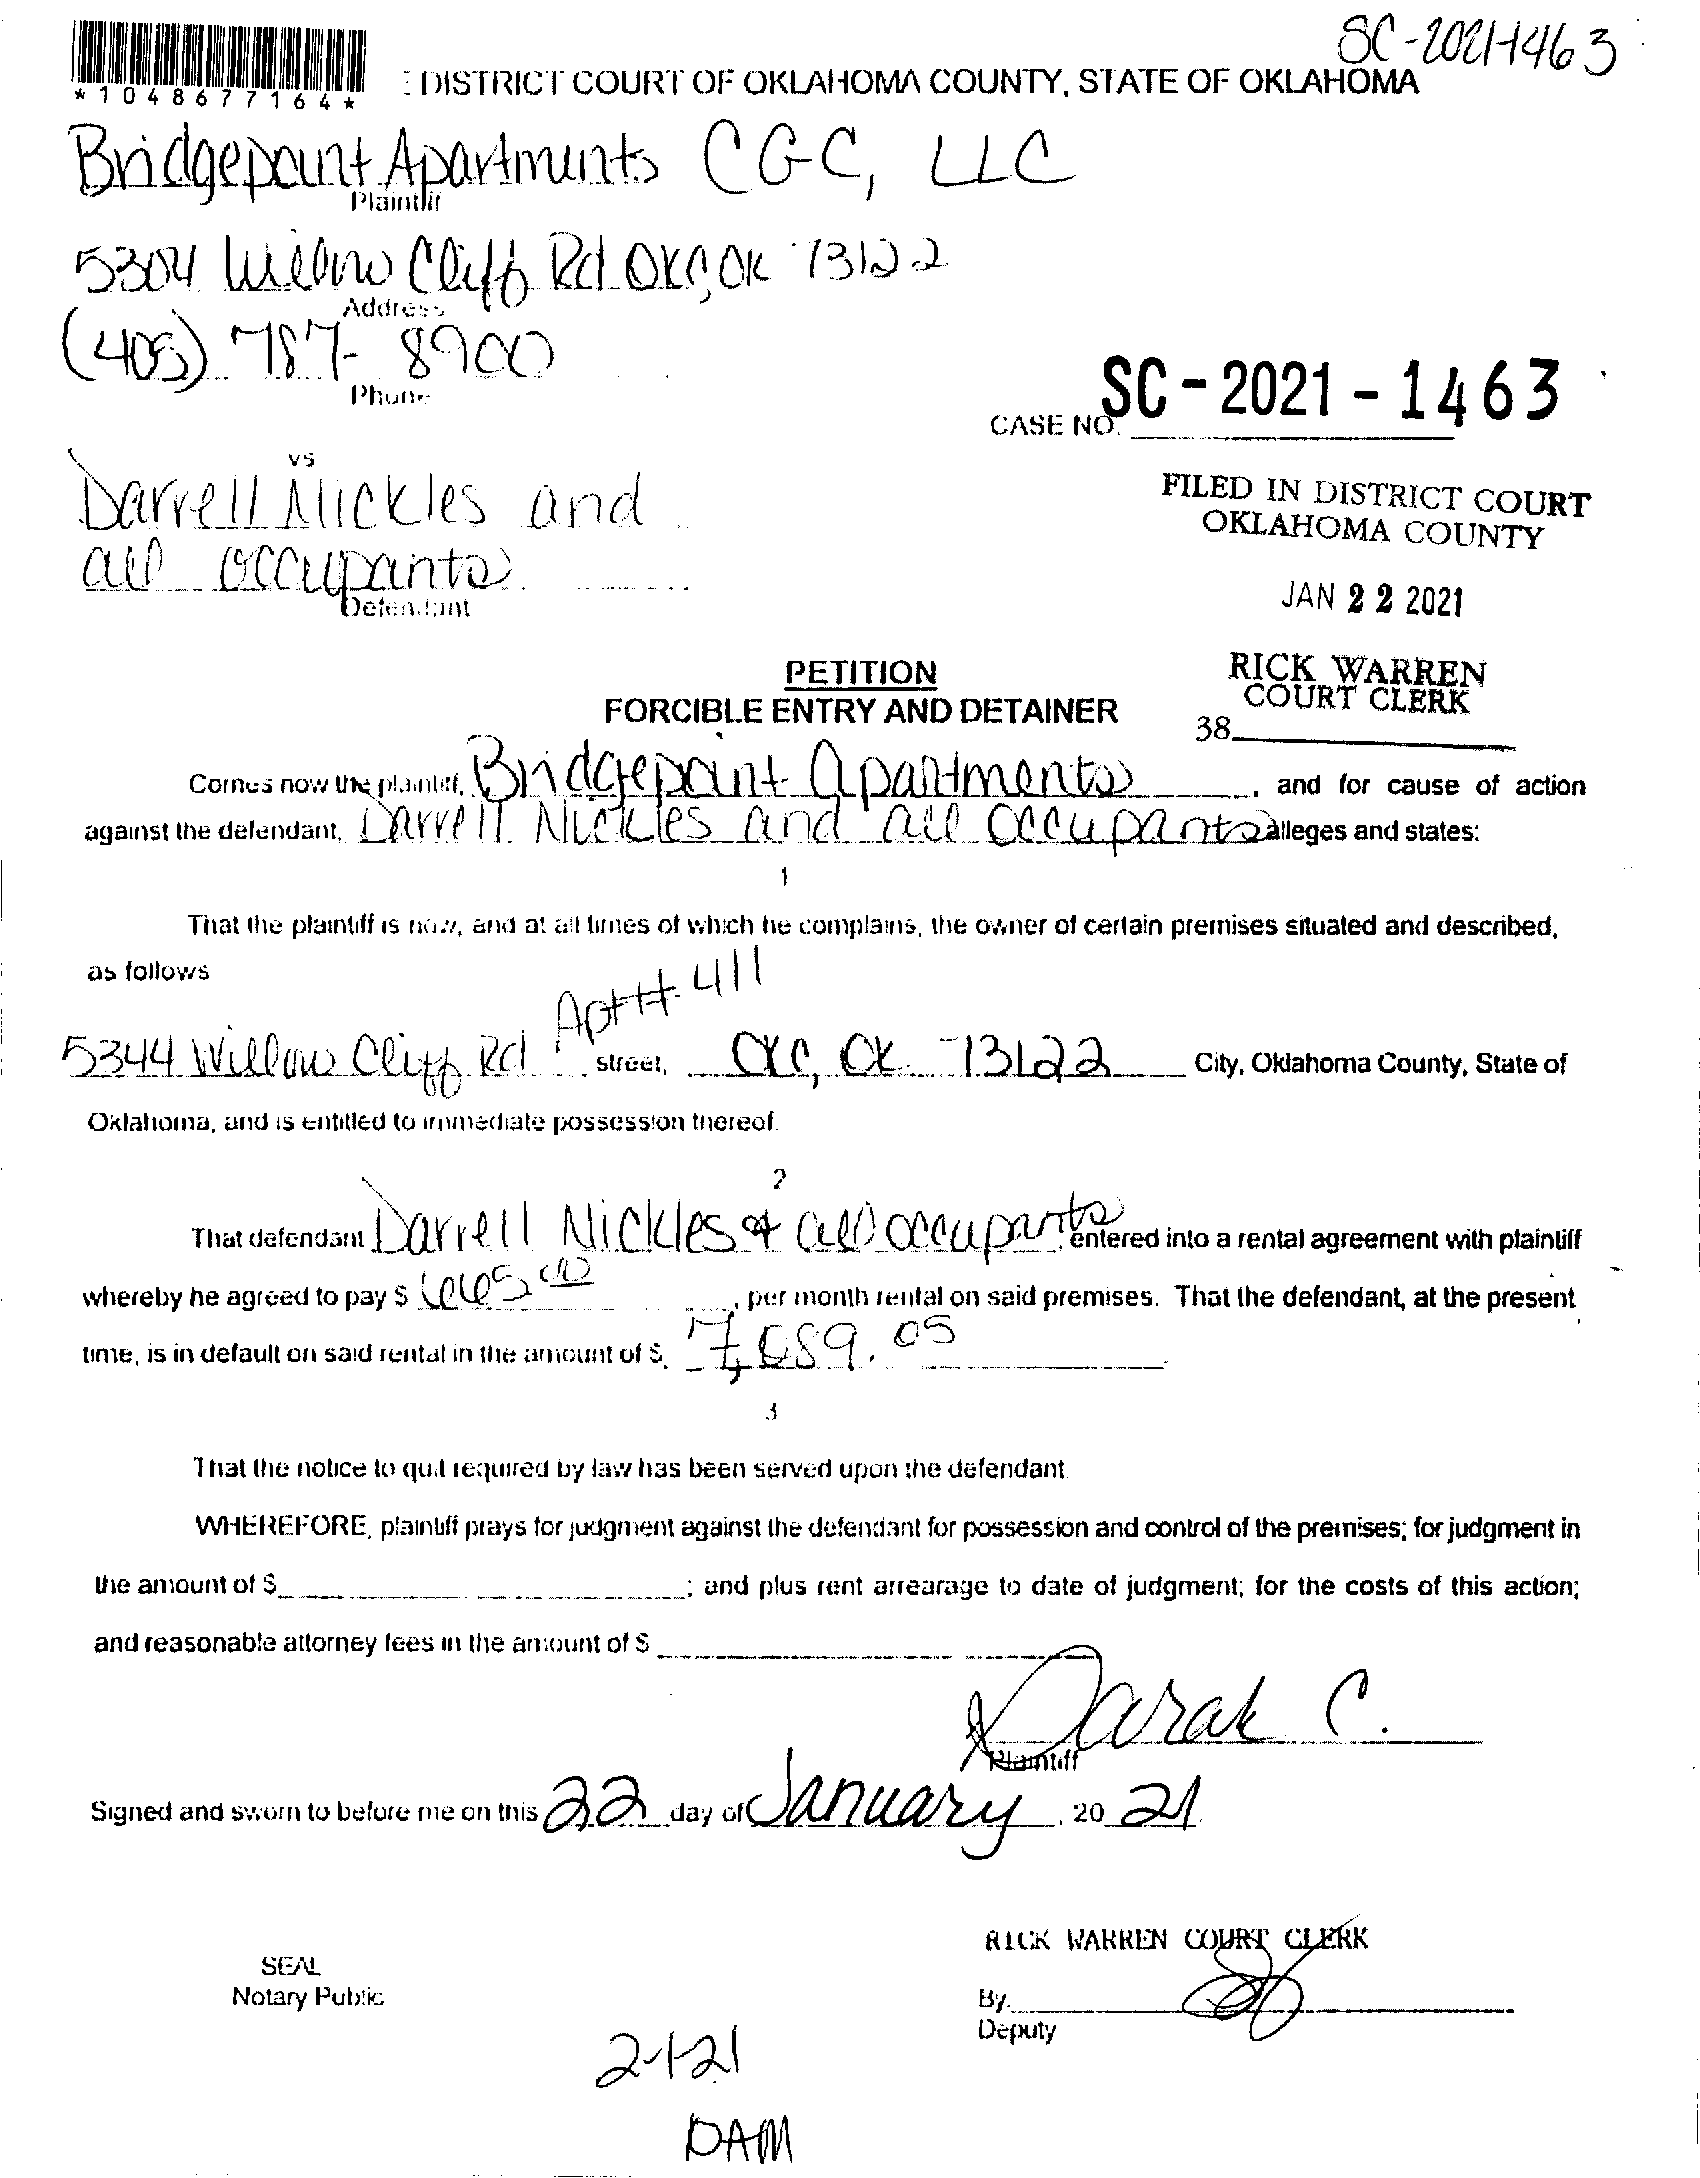 SC-2021-1463
*1048677164*
: DISTRICT COURT OF OKLAHOMA COUNTY, STATE OF OKLAHOMA
Bridgepoint Apartments CGC, LLC
Plaintiff
5304 Willow Cliff Rd OKC, OK 73122
Address
(405) 787-8900
Phone
CASE NO. SC-2021-1463
vs
Darrell Nickles and
all occupants
Defendant
FILED IN DISTRICT COURT
OKLAHOMA COUNTY
JAN 22 2021
RICK WARREN
COURT CLERK
38
PETITION
FORCIBLE ENTRY AND DETAINER
Comes now the plaintiff, Bridgepoint Apartments, and for cause of action
against the defendant, Darrell Nickles and all occupants alleges and states:
1
That the plaintiff is now, and at all times of which he complains, the owner of certain premises situated and described,
as follows
Apt # 411
5344 Willow Cliff Rd street, OKC, OK 73122 City, Oklahoma County, State of
Oklahoma, and is entitled to immediate possession thereof.
2
That defendant Darrell Nickles & all occupants entered into a rental agreement with plaintiff
whereby he agreed to pay $ 665 00, per month rental on said premises. That the defendant, at the present
time, is in default on said rental in the amount of $.
3
That the notice to quit required by law has been served upon the defendant
WHEREFORE, plaintiff prays for judgment against the defendant for possession and control of the premises; for judgment in
the amount of $ ; and plus rent arrearage to date of judgment; for the costs of this action;
and reasonable attorney fees in the amount of $
C.
Plaintiff
Signed and sworn to before me on this 22 day of January, 20 21
RICK WARREN COURT CLERK
SEAL
Notary Public
By
Deputy
2-1-21
DAM